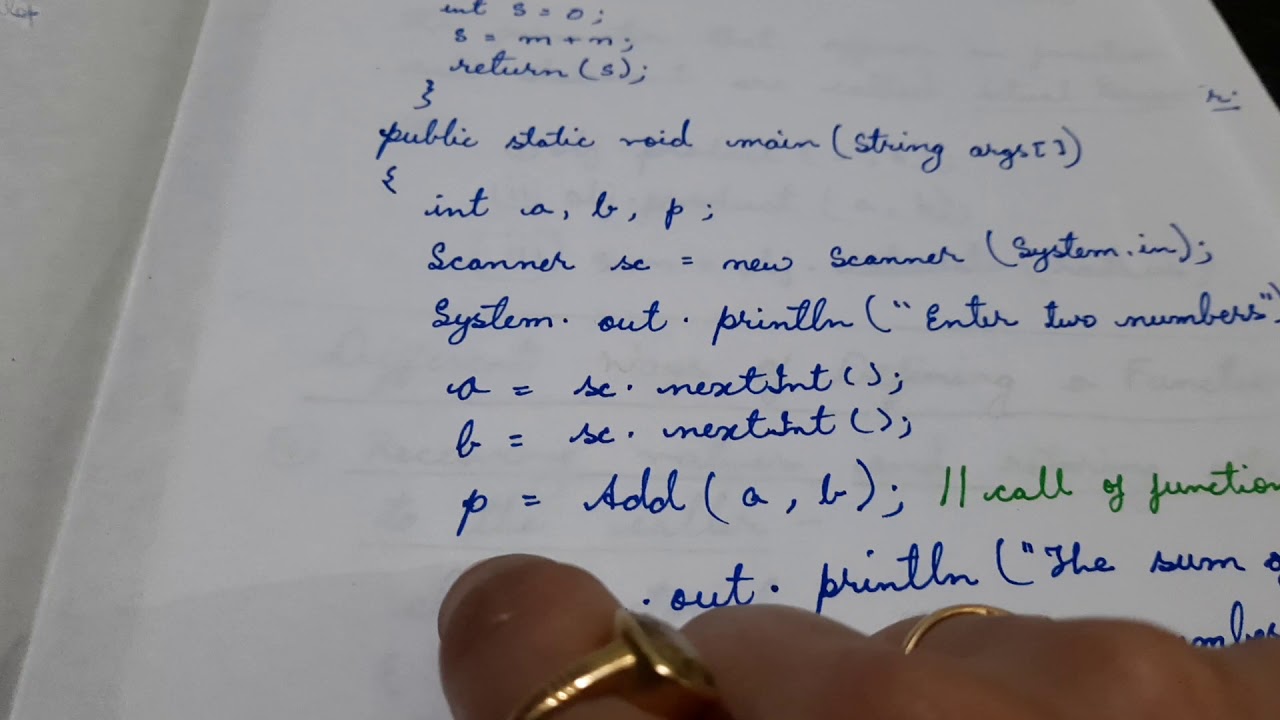 int s = 0;
s = m + n;
return (s);
}
public static void main (String args[])
{
int a, b, p;
Scanner sc = new Scanner (System.in);
System. out. println ("Enter two numbers")
a = sc. nextInt ();
b = sc. nextInt ();
p = Add (a, b); // call of function
. out. println ("The sum